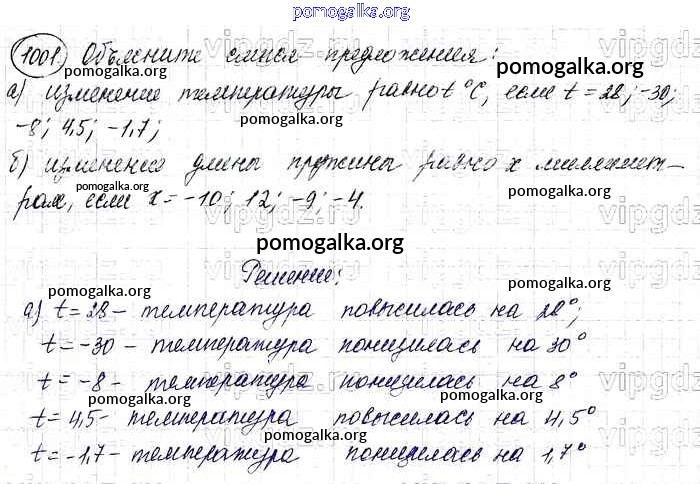 pomogalka.org
1001. Объясните смысл предложения:
pomogalka.org
pomogalka.org
а) изменение температуры равно t °C, если t = 28; -30;
-8; 4,5; -1,7;
pomogalka.org
б) изменение длины пружины равно x миллимет-
pomogalka.org
pomogalka.org
рам, если x = -10; 12; -9; -4.
pomogalka.org
Решение:
pomogalka.org
pomogalka.org
а) t = 28 - температура повысилась на 28°;
t = -30 - температура понизилась на 30°
pomogalka.org
pomogalka.org
t = -8 - температура понизилась на 8°
t = 4,5 - температура повысилась на 4,5°
pomogalka.org
pomogalka.org
t = -1,7 - температура понизилась на 1,7°